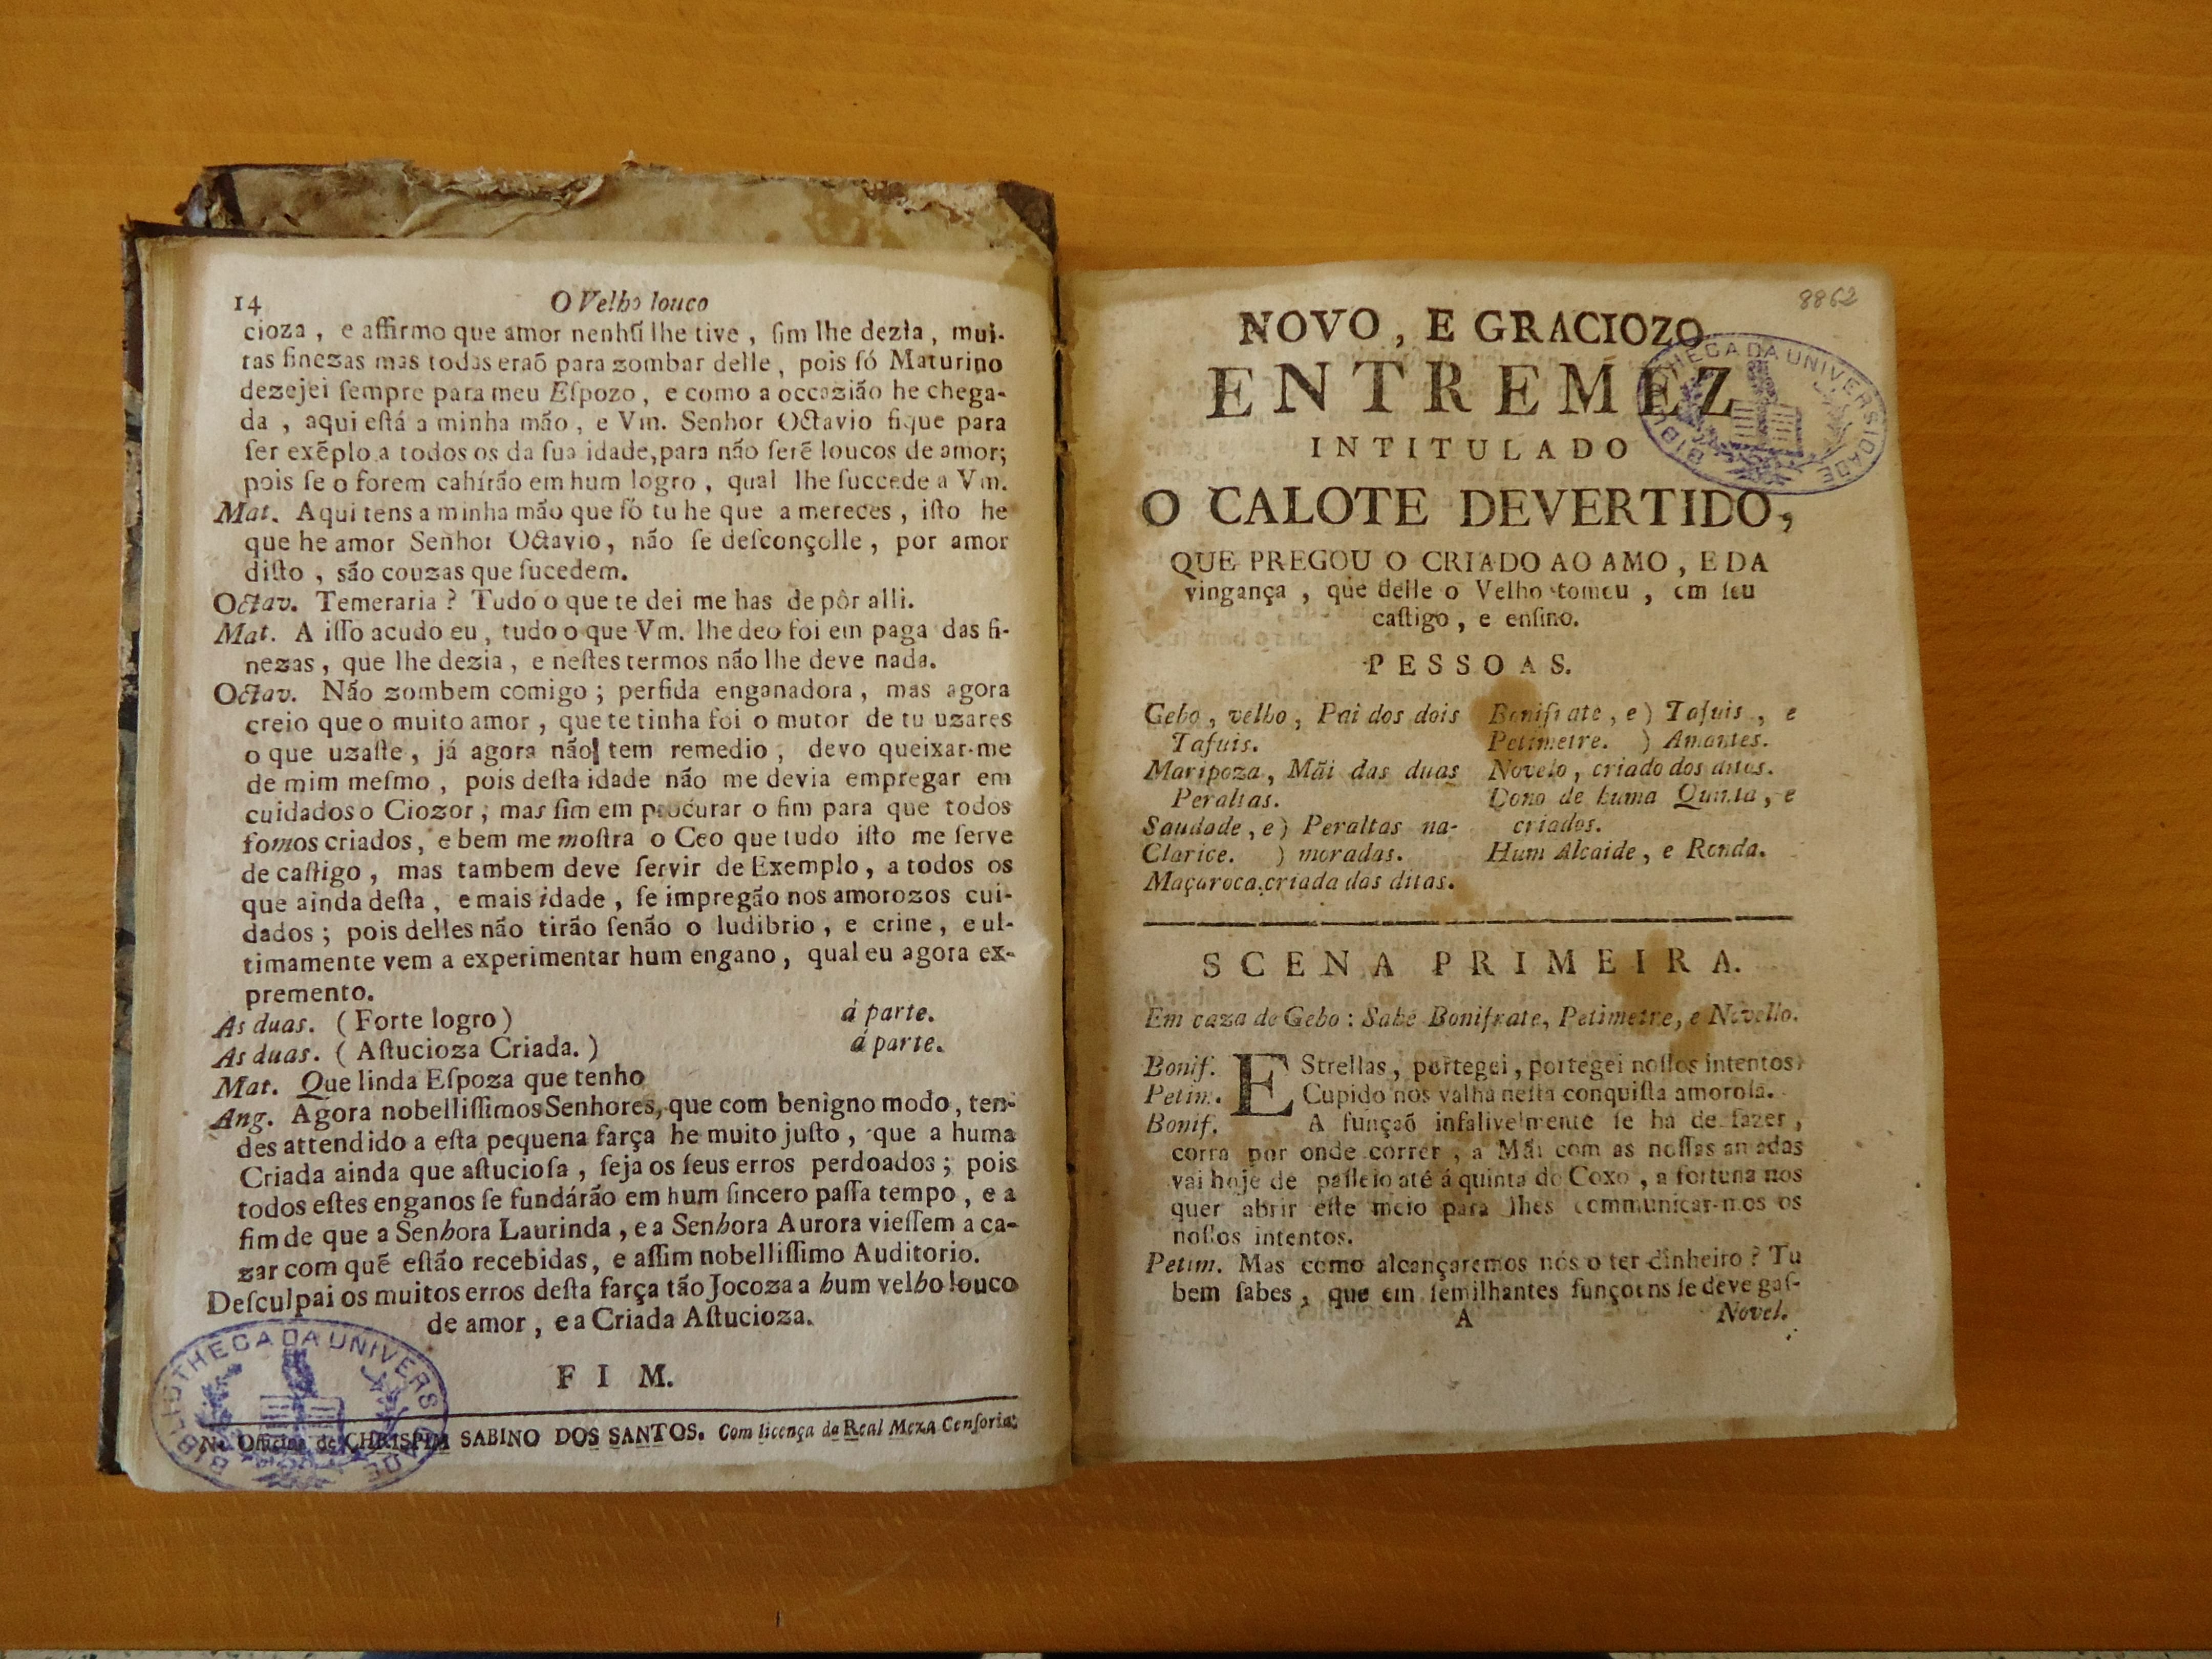 14 O Velho louco
cioza , e affirmo que amor nenhũ lhe tive , ſim lhe dezia , mui-
tas finezas mas todas eraõ para zombar delle , pois ſó Maturino
dezejei ſempre para meu Eſpozo , e como a occazião he chega-
da , aqui eſtá a minha mão , e Vm. Senhor Octavio fique para
ſer exẽplo a todos os da ſua idade, para não ſerẽ loucos de amor;
pois ſe o forem cahírão em hum logro , qual lhe ſuccede a Vm.
Mat. Aqui tens a minha mão que ſó tu he que a mereces , iſto he
que he amor Senhor Octavio, não ſe deſconçolle , por amor
diſto , são couzas que ſucedem.
Octav. Temeraria ? Tudo o que te dei me has de pôr alli.
Mat. A iſſo acudo eu , tudo o que Vm. lhe deo foi em paga das fi-
nezas , que lhe dezia , e neſtes termos não lhe deve nada.
Octav. Não zombem comigo ; perfida enganadora , mas agora
creio que o muito amor , que te tinha foi o mutor de tu uzares
o que uzaſte , já agora não tem remedio , devo queixar-me
de mim meſmo , pois deſta idade não me devia empregar em
cuidados o Ciozor ; mas ſim em procurar o fim para que todos
ſomos criados , e bem me moſtra o Ceo que tudo iſto me ſerve
de caſtigo , mas tambem deve ſervir de Exemplo , a todos os
que ainda deſta , e mais idade , ſe impregão nos amorozos cui-
dados ; pois delles não tirão ſenão o ludibrio , e crine , e ul-
timamente vem a experimentar hum engano , qual eu agora ex-
premento.
As duas. ( Forte logro ) á parte.
As duas. ( Aſtucioza Criada. ) á parte.
Mat. Que linda Eſpoza que tenho
Ang. Agora nobelliſſimos Senhores, que com benigno modo , ten-
des attendido a eſta pequena farça he muito juſto , que a huma
Criada ainda que aſtucioſa , ſeja os ſeus erros perdoados ; pois
todos eſtes enganos ſe fundárão em hum ſincero paſſa tempo , e a
fim de que a Senhora Laurinda , e a Senhora Aurora vieſſem a ca-
zar com quẽ eſtão recebidas, e aſſim nobelliſſimo Auditorio.
Deſculpai os muitos erros deſta farça tão Jocoza a hum velho louco
de amor , e a Criada Aſtucioza.
F I M.
Na Oficina de CHRISPIM SABINO DOS SANTOS. Com licença da Real Meza Cenſoria.
BIBLIOTHECA DA UNIVERSIDADE
8862
NOVO , E GRACIOZO
ENTREMEZ
INTITULADO
O CALOTE DEVERTIDO,
QUE PREGOU O CRIADO AO AMO , E DA
vingança , que delle o Velho tomou , em ſeu
caſtigo , e enſino.
PESSOAS.
Gebo , velho , Pai dos dois
Tafuis.
Maripoza , Mãi das duas
Peraltas.
Saudade , e ) Peraltas na-
Clarice. ) moradas.
Maçaroca, criada das ditas.
Bonifrate , e ) Tafuis , e
Petimetre. ) Amantes.
Novelo , criado dos ditos.
Dono de huma Quinta , e
criados.
Hum Alcaide , e Ronda.
SCENA PRIMEIRA.
Em caza de Gebo : Sahe Bonifrate, Petimetre, e Novello.
Bonif. EStrellas , portegei , portegei noſſos intentos
Petim. Cupido nos valha neſta conquiſta amoroſa.
Bonif. A funçaõ infalivelmente ſe ha de fazer ,
corra por onde correr , a Mãi com as noſſas amadas
vai hoje de paſſeio até á quinta do Coxo , a fortuna nos
quer abrir eſte meio para lhes communicar-mos os
noſſos intentos.
Petim. Mas como alcançaremos nós o ter dinheiro ? Tu
bem ſabes , que em ſemilhantes funçoens ſe deve gaſ-
A Novel.
BIBLIOTHECA DA UNIVERSIDADE